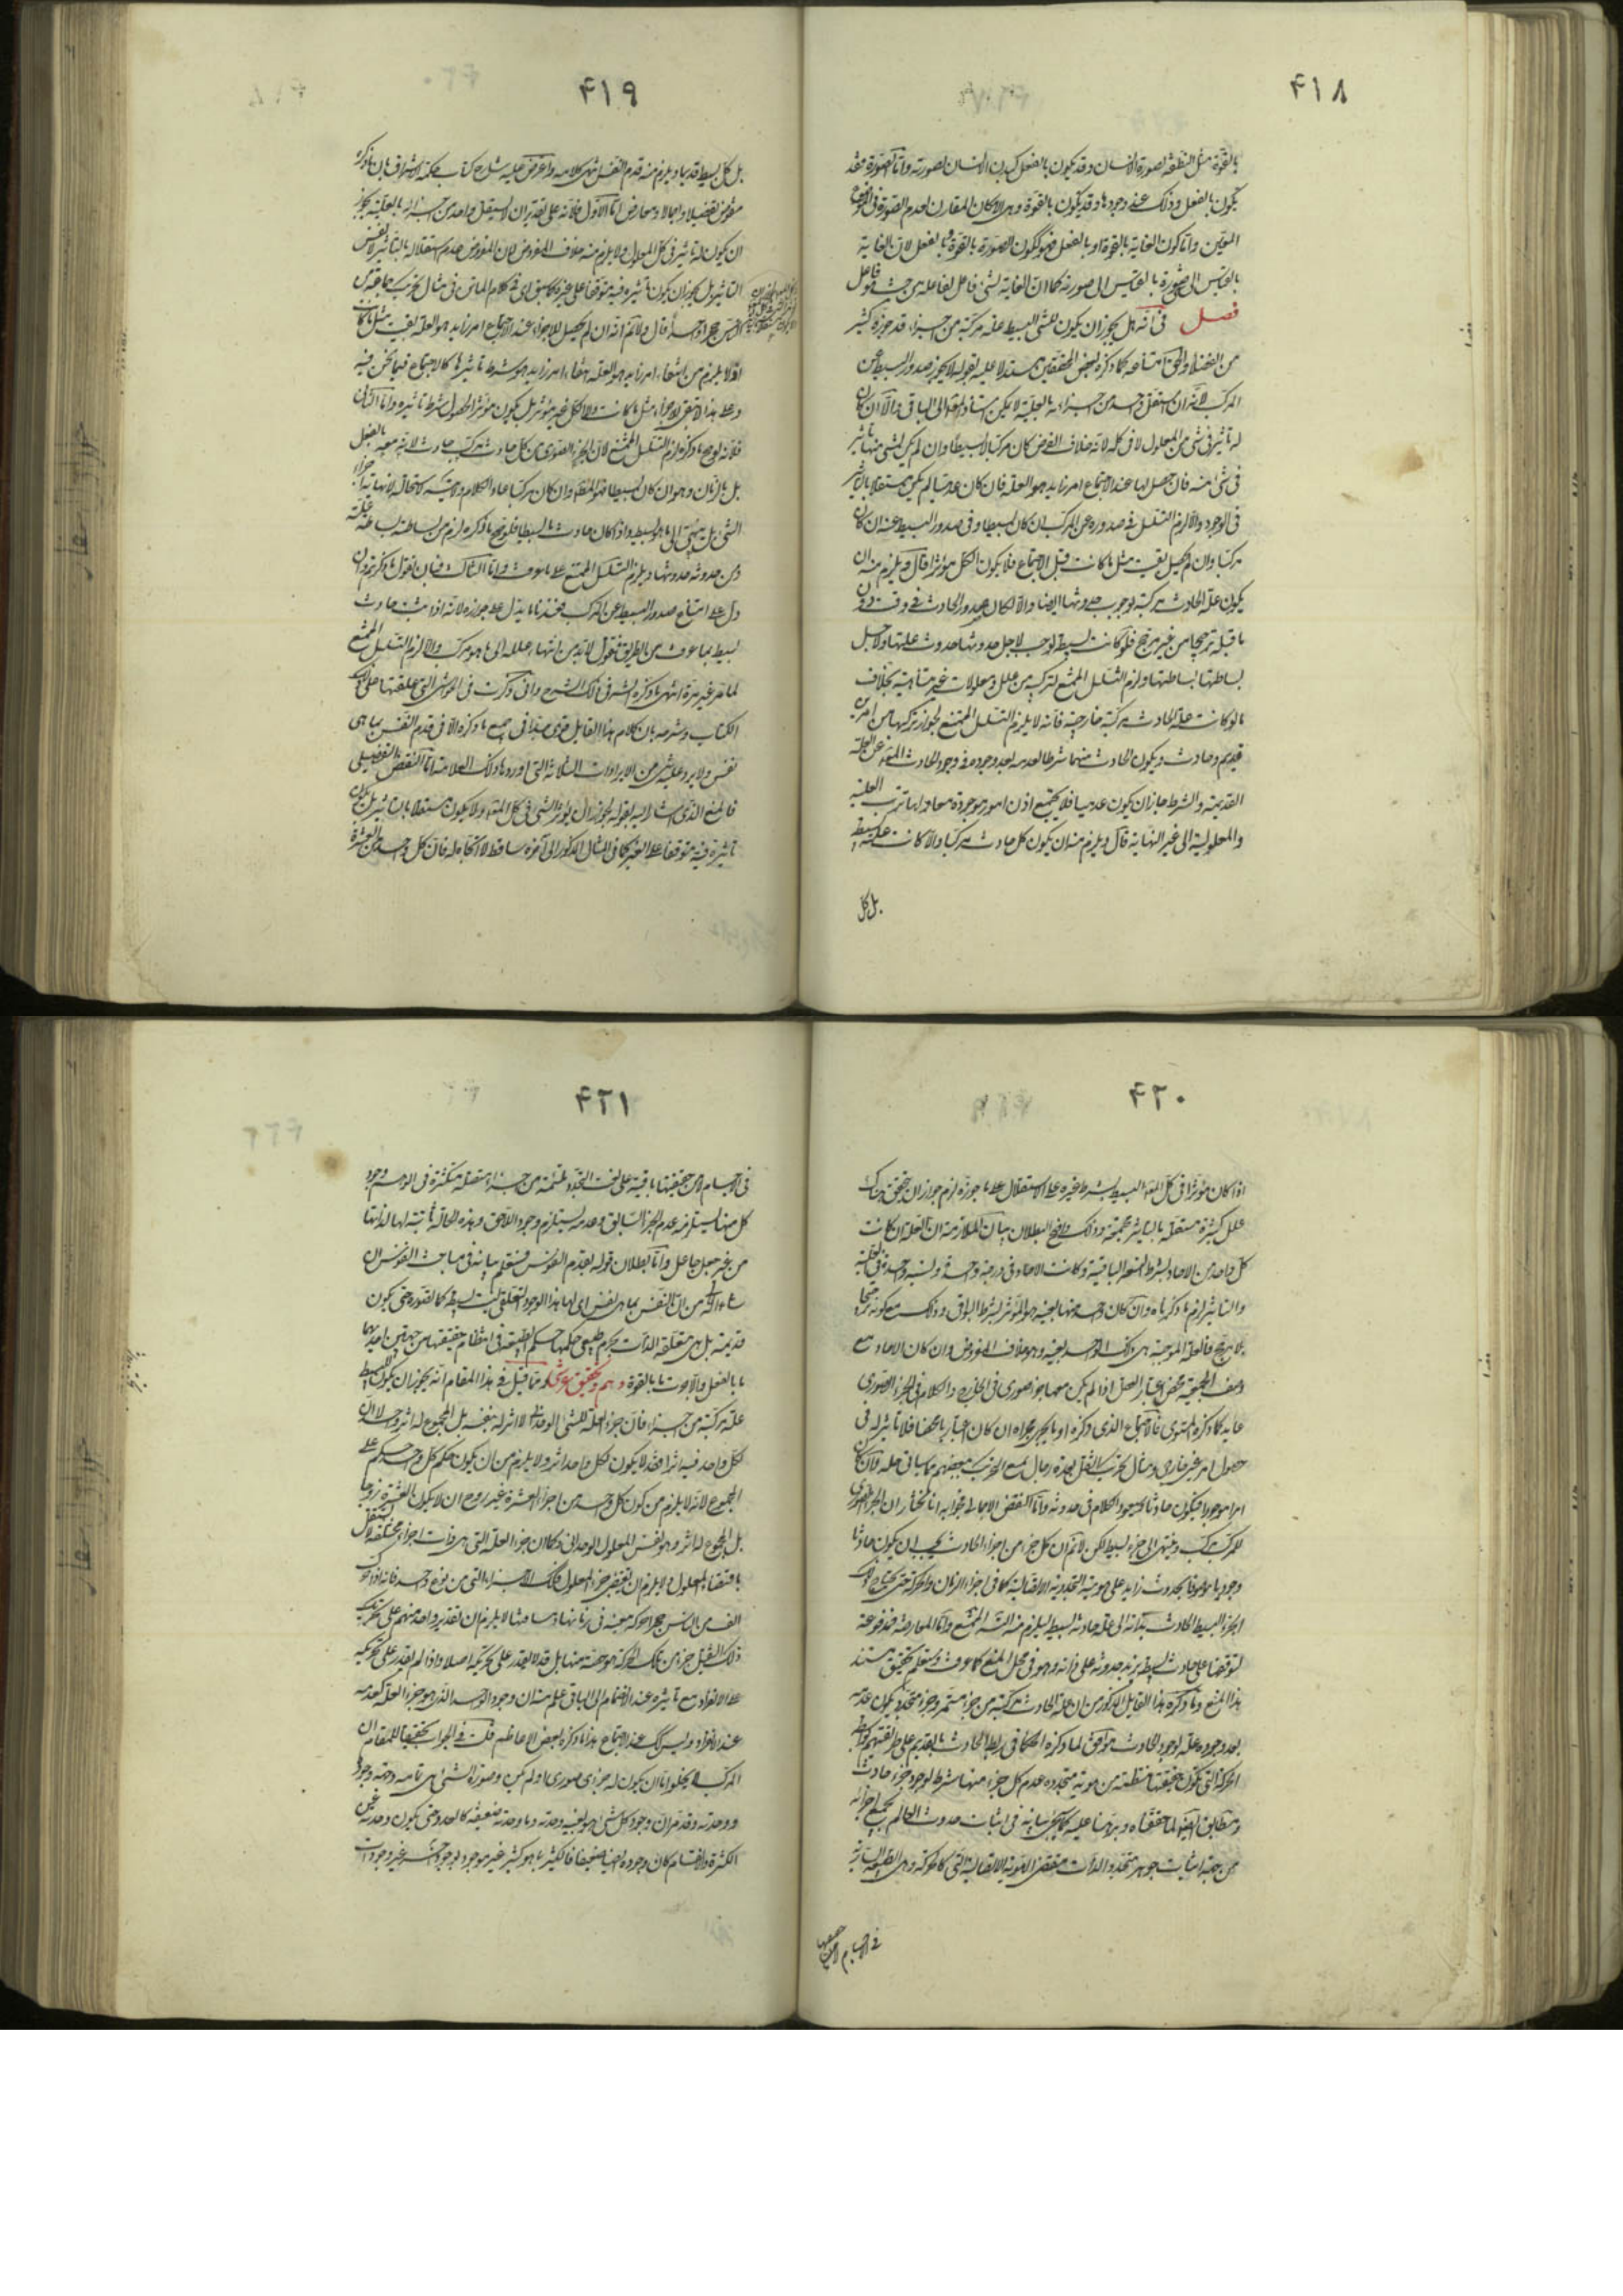 ٤١٨
بالقوة مثل النطفة لصورة الانسان وقد يكون بالفعل كبدن الانسان لصورته واما الصورة فقد
يكون بالفعل وذلك عند وجودها وقد يكون بالقوة وهى الامكان المقارن لعدم الصورة فى
المعين واما كون الغاية بالقوة او بالفعل فهو ككون الصورة بالقوة او بالفعل لان الغاية
بالقياس الى شىء صورة بالقياس الى صورته كما ان الغاية لشىء فاعل لفاعله من حيث هو فاعل
فصل فى انه هل يجوز ان يكون للشىء البسيط علة مركبة من اجزاء قد جوزه كثير
من الفضلاء والحق امتناعه كما ذكره بعض المحققين مستدلا عليه بقوله لا يجوز صدور البسيط عن
المركب لانه ان استقل واحد من اجزائه بالعلية لا يمكن استناد المعلول الى الباقى والا ان كان
له تاثير فى شىء من المعلول لا فى كله لانه خلاف الفرض كان مركبا لا بسيطا وان لم يكن لشىء منها تاثير
فى شىء منه فان حصل لها عند الاجتماع امر زايد هو العلة فان كان عدميا لم يكن مستقلا بالتاثير
فى الوجود والا لزم التسلسل فى صدوره عن المركب ان كان بسيطا وفى صدور البسيط عنه ان كان
مركبا وان لم يحصل بقيت مثل ما كانت قبل الاجتماع فلا يكون الكل مؤثرا قال ويلزم منه ان
يكون علة الحادث مركبة لوجوب حدوثها ايضا والا لكان صدور الحادث فى وقت دون
ما قبله ترجيحا من غير مرجح فلو كانت بسيطة لوجب لاجل حدوثها حدوث علتها ولاجل
بساطتها بساطتها ولزم التسلسل الممتنع لتركبه من علل ومعلولات غير متناهية بخلاف
ما لو كانت علة الحادث مركبة خارجية فانه لا يلزم التسلسل الممتنع لجواز تركبها من امرين
قديم وحادث ويكون الحادث منهما شرطا لعدمه بعد وجوده فى وجود الحادث المعلول عن العلة
القديمة والشرط جاز ان يكون عدميا فلا يجتمع اذن امور موجودة معا ولها ترتب العلية
والمعلولية الى غير النهاية قال ويلزم منه ان يكون كل حادث مركبا والا كانت علته بسيطة
بل كل
٤١٩
بل كل بسيط قديما ويلزم منه قدم النفس انتهى كلامه واعترض عليه شارح كتاب حكمة الاشراق بان ما ذكره
منقوض تفصيلا واجمالا ومعارض اما الاول فلانه على تقدير ان لا يستقل واحد من اجزائه بالعلية يجوز
ان يكون له تاثير فى كل المعلول ولا يلزم منه خلاف المفروض لان المفروض عدم استقلاله بالتاثير لا نفس
التاثير بل يجوز ان يكون تاثيره فيه متوقفا على غيره كما سبق اى فى كلام الماتن فى مثال تحريك جماعة من
الناس حجرا واحدا قال ولا نم انه ان لم يحصل للاجزاء عند الاجتماع امر زايد هو العلة بقيت مثل ما كانت
اذ لا يلزم من انتفاء امر زايد هو العلة انتفاء امر زايد هو شرط تاثيرها كالاجتماع فيما نحن فيه
وعلى هذا لا تبقى الاجزاء مثل ما كانت ولا الكل غير مؤثر بل يكون مؤثرا لحصول شرط تاثيره واما الثانى
فلانه لو صح ما ذكره لزم التسلسل الممتنع لان الجزء الصورى من كل حادث مركب حادث لانه معه بالفعل
بل بالزمان وهو ان كان بسيطا فهو المط وان كان مركبا عاد الكلام فيه لاستحالة لا نهاية اجزاء
الشىء بل ينتهى الى ما هو بسيط واذا كان حادث ما بسيطا فلو صح ما ذكره لزم من بساطته بساطة علته
ومن حدوثه حدوثها ويلزم التسلسل الممتنع على ما عرفت واما الثالث فبان نقول ما ذكرتم وان
دل على امتناع صدور البسيط عن المركب فعندنا ما يدل على جوازه لانه اذا ثبت حادث
بسيط بما عرف من الطريق فنقول لا بد من انتهاء علله الى ما هو مركب والا لزم التسلسل الممتنع
لما مر غير مرة انتهى ما ذكره الش فى ذلك الشرح وانى ذكرت فى الحواشى التى علقتها على ذلك
الكتاب وشرحه بان كلام هذا القايل قوى جدا فى جميع ما ذكره الا فى قدم النفس بما هى
نفس ولا يرد عليه شىء من الايرادات الثلاثة التى اوردها ذلك العلامة اما النقض التفصيلى
فالمنع الذى اشار اليه بقوله لجواز ان يؤثر الشىء فى كل المعلول ولا يكون مستقلا بالتاثير بل يكون
تاثيره فيه متوقفا على الغير كما فى المثال المذكور الى آخره ساقط لا اتجاه له فان كل واحد من العشرة
٤٢٠
اذا كان مؤثرا فى كل المعلول البسيط بشرط غيره على الاستقلال على ما جوزه لزم جواز ان يتحقق هناك
علل كثيرة مستقلة بالتاثير مجتمعة وذلك واضح البطلان بيان الملازمة ان العلة ان كانت
كل واحد من الاحاد بشرط انضمام الباقية وكانت الاحاد فى درجة واحدة ونسبة واحدة فى العلية
والتاثير لزم ما ذكرناه وان كان واحد منها بعينه هو المؤثر بشرط البواقى وذلك مع كونه ترجيحا
بلا مرجح فالعلة الموجبة هى ذلك الواحد بعينه وهو خلاف المفروض وان كان الاحاد مع
وصف الجمعية محض اعتبار العقل اذا لم يكن معها جزء صورى فى الخارج والكلام فى الجزء الصورى
عايد كما ذكره المستوى فالاجتماع الذى ذكره او ما يجرى مجراه ان كان اعتباريا محضا فلا تاثير له فى
حصول امر غير عارض ومثال تحريك الثقل بعدة رجال سمع الحزب بعضهم كما ياتى حله وان كان
امرا موجودا فيكون حادثا فيعود الكلام فى حدوثه واما النقض الاجمالى فجوابه انا نختار ان الجزء الصورى
للمركب مركب وينتهى الى جزء بسيط لكن لا نم ان كل جزء من اجزاء الحادث يجب ان يكون حادثا
وجوديا موصوفا بحدوث زايد على هويته التجددية الاتصالية كما فى اجزاء الزمان والحركة حتى يحتاج ذلك
الجزء البسيط الحادث بذاته الى علة حادثة بسيطة ليلزم منه التسلسل الممتنع واما المعارضة فمدفوعة
لتوقفها على حادث بسيط يزيد حدوثه على ذاته وهو فى محل المنع كما عرفت وستعلم تحقيق مستند
هذا المنع وما ذكره هذا القايل المذكور من ان علة الحادث مركبة من جزء مستمر وجزء متجدد يكون عدمه
بعد وجوده علة لوجود الحادث موافق لما ذكره الحكماء فى ربط الحادث بالقديم على طريقتهم بواسطة
الحركة التى تكون حقيقتها منتظمة من هوية متجددة عدم كل جزء منها شرط لوجود جزء حادث
ومطابق ايضا لما حققناه وبرهنا عليه كما سيجىء بيانه فى اثبات حدوث العالم بجميع اجزائه
من جهة اثبات جوهر متجدد الذات مقتضى الهوية الاتصالية التى كالحركة وهى الطبيعة السارية
فى الاجسام لان حقيقتها
٤٢١
فى الاجسام لان حقيقتها باقية على نعت التجدد ملتئمة من اجزاء متصلة متكثرة فى الوهم وجود
كل منها يستلزم عدم الجزء السابق وعدمه يستلزم وجود اللاحق وهذه الحالة ثابتة لها لذاتها
من غير جعل جاعل واما بطلان قوله بقدم النفوس فستعلم بيانه فى مباحث النفس ان
شاء الله من ان النفس بما هى نفس اى لها هذا الوجود التعلقى ليست بسيطة كما تصوره حتى يكون
قديمة بل هى متعلقة الذات بجرم طبيعى حكمها حكم الطبيعة فى انتظام حقيقتها من جهتين احديهما
ما بالفعل والاخرى ما بالقوة وهم وتحقيق عرشى ومما قيل فى هذا المقام انه يجوز ان يكون للبسيط
علة مركبة من اجزاء فان جزء العلة للشىء الوحدانى لا اثر له بنفسه بل المجموع له اثر واحد لا ان
لكل واحد فيه اثرا فقد لا يكون لكل واحد اثر ولا يلزم من ان يكون حكم كل واحد حكم على
المجموع لانه لا يلزم من كون كل واحد من اجزاء العشرة غير زوج ان لا يكون العشرة زوجا
بل المجموع له اثر وهو نفس المعلول الوحدانى وكما ان جزء العلة التى هى ذات اجزاء مختلفة لا يستقل
باقتضاء المعلول ولا يلزم ان يقتضى جزء المعلول فكذلك الاجزاء التى من نوع واحد فانه اذا حرك
الف من الناس حجرا حركة معينة فى زمانها ومسافتها لا يلزم ان يقدر واحد منهم على تحريك
ذلك الثقيل جزءا من تلك الحركة هو حصته منها بل قد لا يقدر على تحريكه اصلا واذا لم يقدر على تحريكه
على الانفراد مع تاثيره عند الانضمام الى الباقى علم منه ان وجود الواحد الذى هو جزء العلة كعدمه
عند الانفراد وليس كذلك عند الاجتماع هذا ما ذكره بعض الاعاظم قلت فى الجواب تحقيقا للمقام ان
المركب لا يخلو اما ان يكون له جزء صورى او لم يكن وصورة الشىء هى تمامه وجهة وجوده
ووحدته وقد مر ان وجود كل شىء هو بعينه وحدته وما وحدته ضعيفة كالعدد حتى يكون وحدته عين
الكثرة والانقسام كان وجوده ايضا ضعيفا فالكثير بما هو كثير غير موجود بوجود اخر غير وجودات